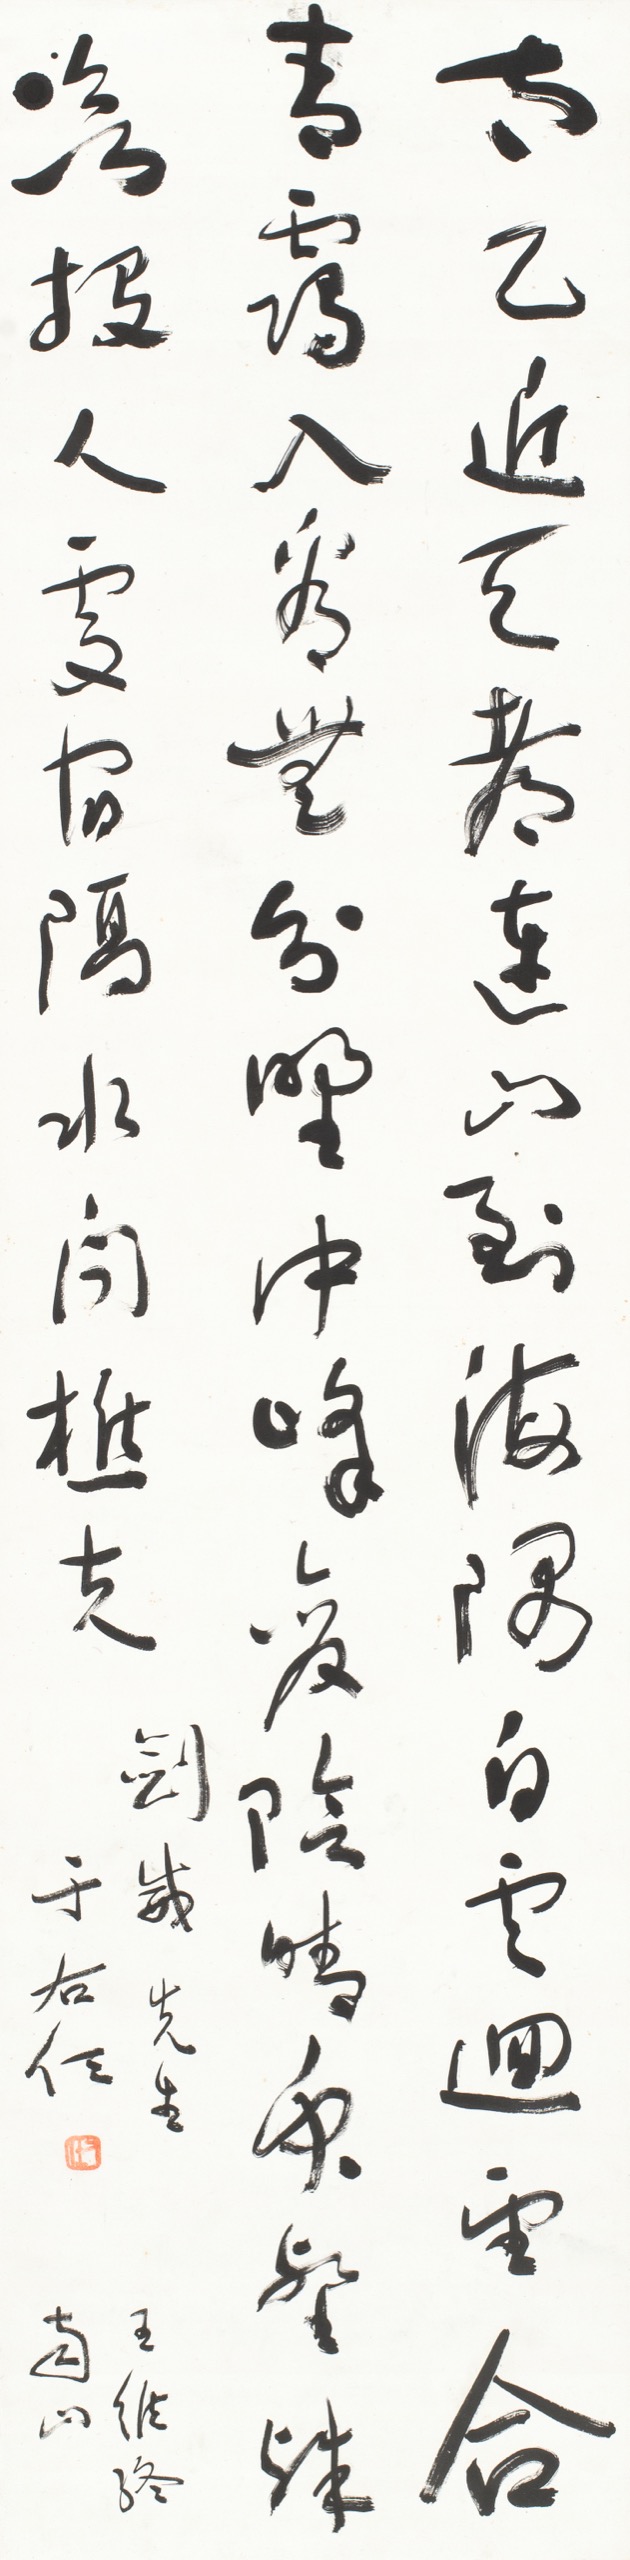 太乙近天都連山到海隅白雲迴望合
青靄入看無分野中峰變陰晴眾壑殊
欲投人處宿隔水問樵夫
劍 先生
于右任
王維終
南山